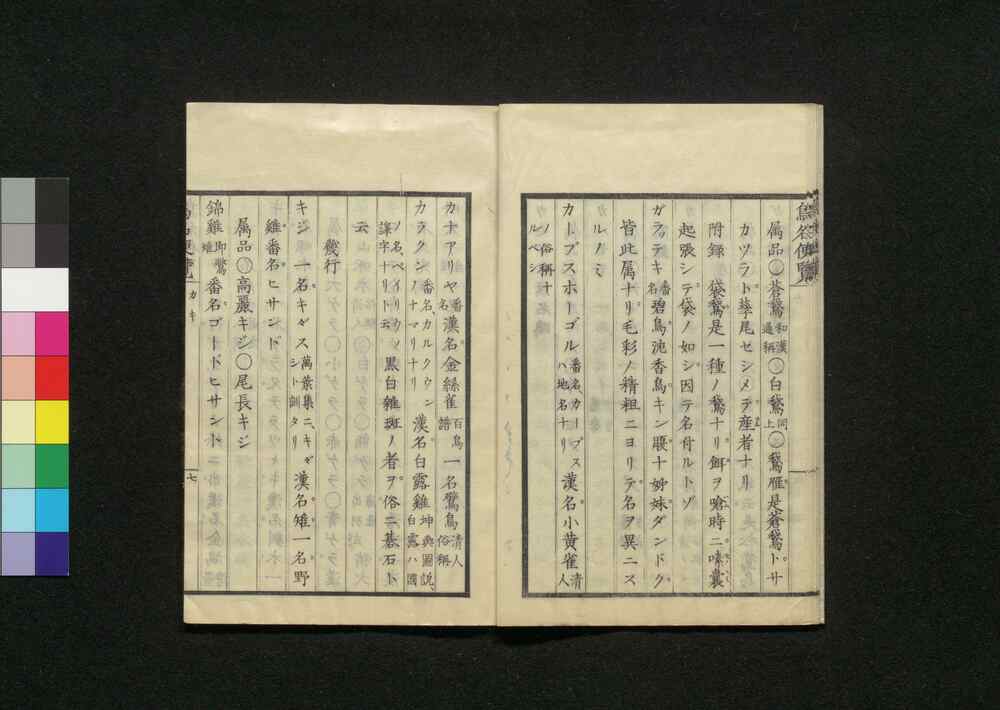 鳥名便覧
属品〇蒼鵞和漢通称〇白鵞同上〇鵞雁是蒼鵞トサ
カツラト孳尾セシメテ産者ナリ
附録 袋鵞是一種ノ鵞ナリ餌ヲ喰時ニ嗉嚢
起張シテ袋ノ如シ因テ名付ルトゾ
ガラテキ番名碧鳥沈香鳥キン腹十姉妹ダンドク
皆此属ナリ毛彩ノ精粗ニヨリテ名ヲ異ニス
ルノミ
カープスホーゴル番名カープスハ地名ナリ漢名小黄雀清人
ノ俗称ナルベシ
カナアリヤ番名漢名金絲雀百鳥譜一名鸞鳥清人俗称
カラクン番名カルクウンノナマリナリ漢名白露雞坤輿図説、白露ハ国
ノ名、ペイリウノ譯字ナリト云黒白雑斑ノ者ヲ俗ニ碁石ト
云
幾行
キジ 一名キヾス萬葉集ニ、キヾシト訓タリ漢名雉一名野
雞番名ヒサンド
属品〇高麗キジ〇尾長キジ
錦雞即鷩雉番名ゴードヒサント
カ キ
七